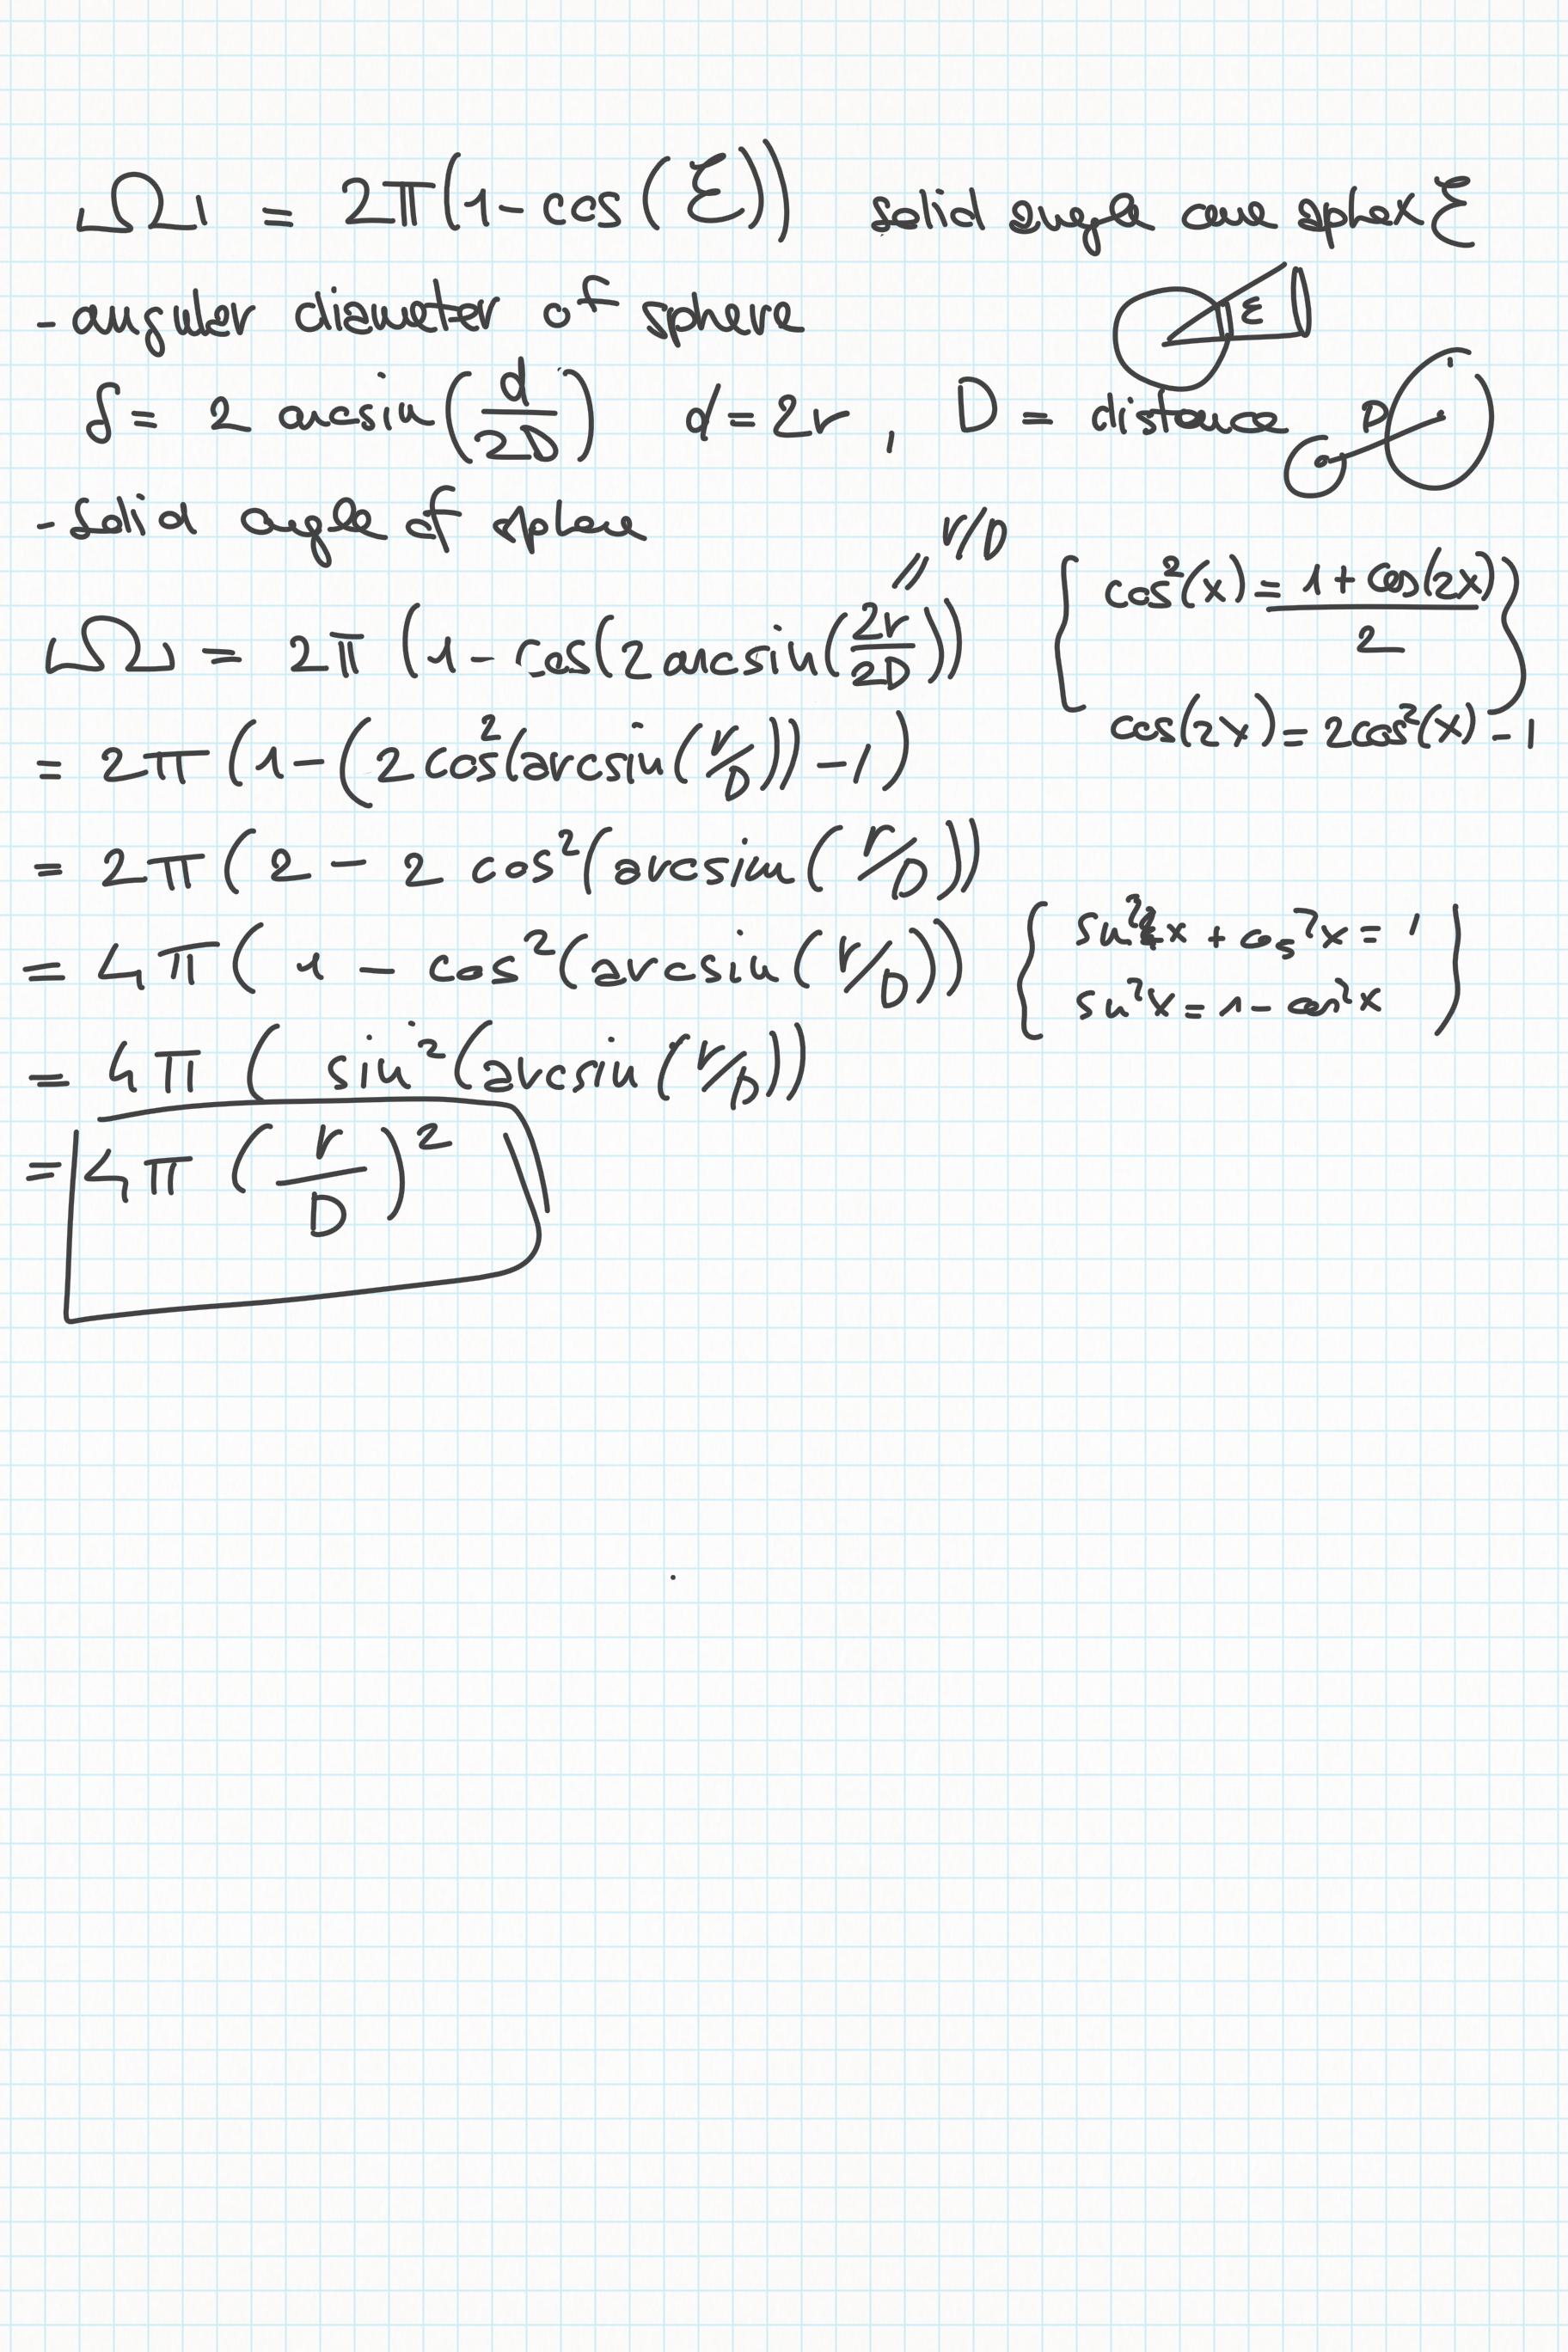 Ω = 2π(1 - cos(ℰ)) solid angle cone aphex ℰ
ε
- angular diameter of sphere
δ = 2 arcsin(d/2D) d = 2r , D = distance D
- solid angle of sphere
// r/D
Ω = 2π (1 - cos(2 arcsin(2r/2D)) { cos²(x) = (1 + cos(2x))/2 }
cos(2x) = 2cos²(x) - 1
= 2π (1 - (2 cos²(arcsin(r/D)) - 1)
= 2π (2 - 2 cos²(arcsin(r/D))
= 4π ( 1 - cos²(arcsin(r/D)) { sin²x + cos²x = 1
sin²x = 1 - cos²x }
= 4π ( sin²(arcsin(r/D))
= 4π (r/D)²